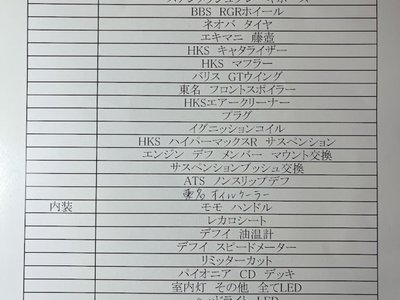 BBS RGRホイール
ネオバ タイヤ
エキマニ 藤壺
HKS キャタライザー
HKS マフラー
バリス GTウイング
東名 フロントスポイラー
HKSエアークリーナー
プラグ
イグニッションコイル
HKS ハイパーマックスR サスペンション
エンジン デフ メンバー マウント交換
サスペンションブッシュ交換
ATS ノンスリップデフ
東名 オイルクーラー
内装 モモ ハンドル
レカロシート
デフィ 油温計
デフィ スピードメーター
リミッターカット
パイオニア CD デッキ
室内灯 その他 全てLED